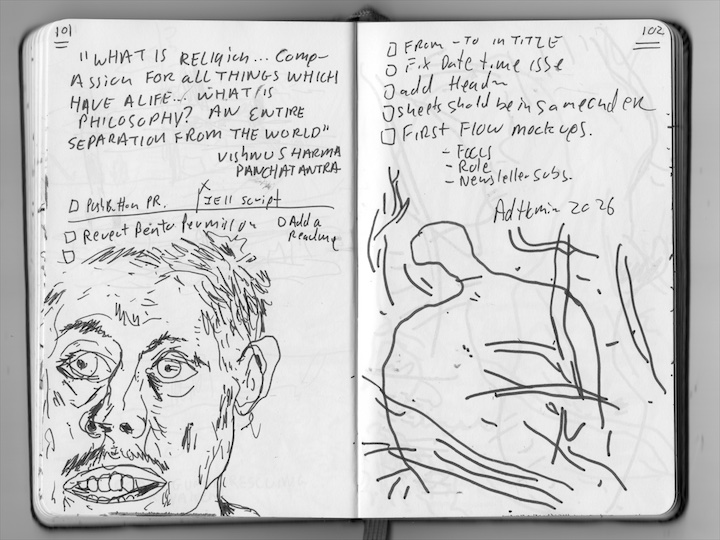 101
"WHAT IS RELIGION... COMP-
ASSION FOR all THINGS WHICH
HAVE A LIFE... WHAT IS
PHILOSOPHY? AN ENTIRE
SEPARATION FROM THE WORLD"
VISHNU SHARMA
PANCHATANTRA
Publication PR.
JEll Script
Revert Permission
Add a
Reading
102
FROM - TO in TITLE
Fix Date time isse
add Header
sheets shold be in same order
FIRST FLOW mockups.
- Focus
- Role
- Newsletter subs.
2026